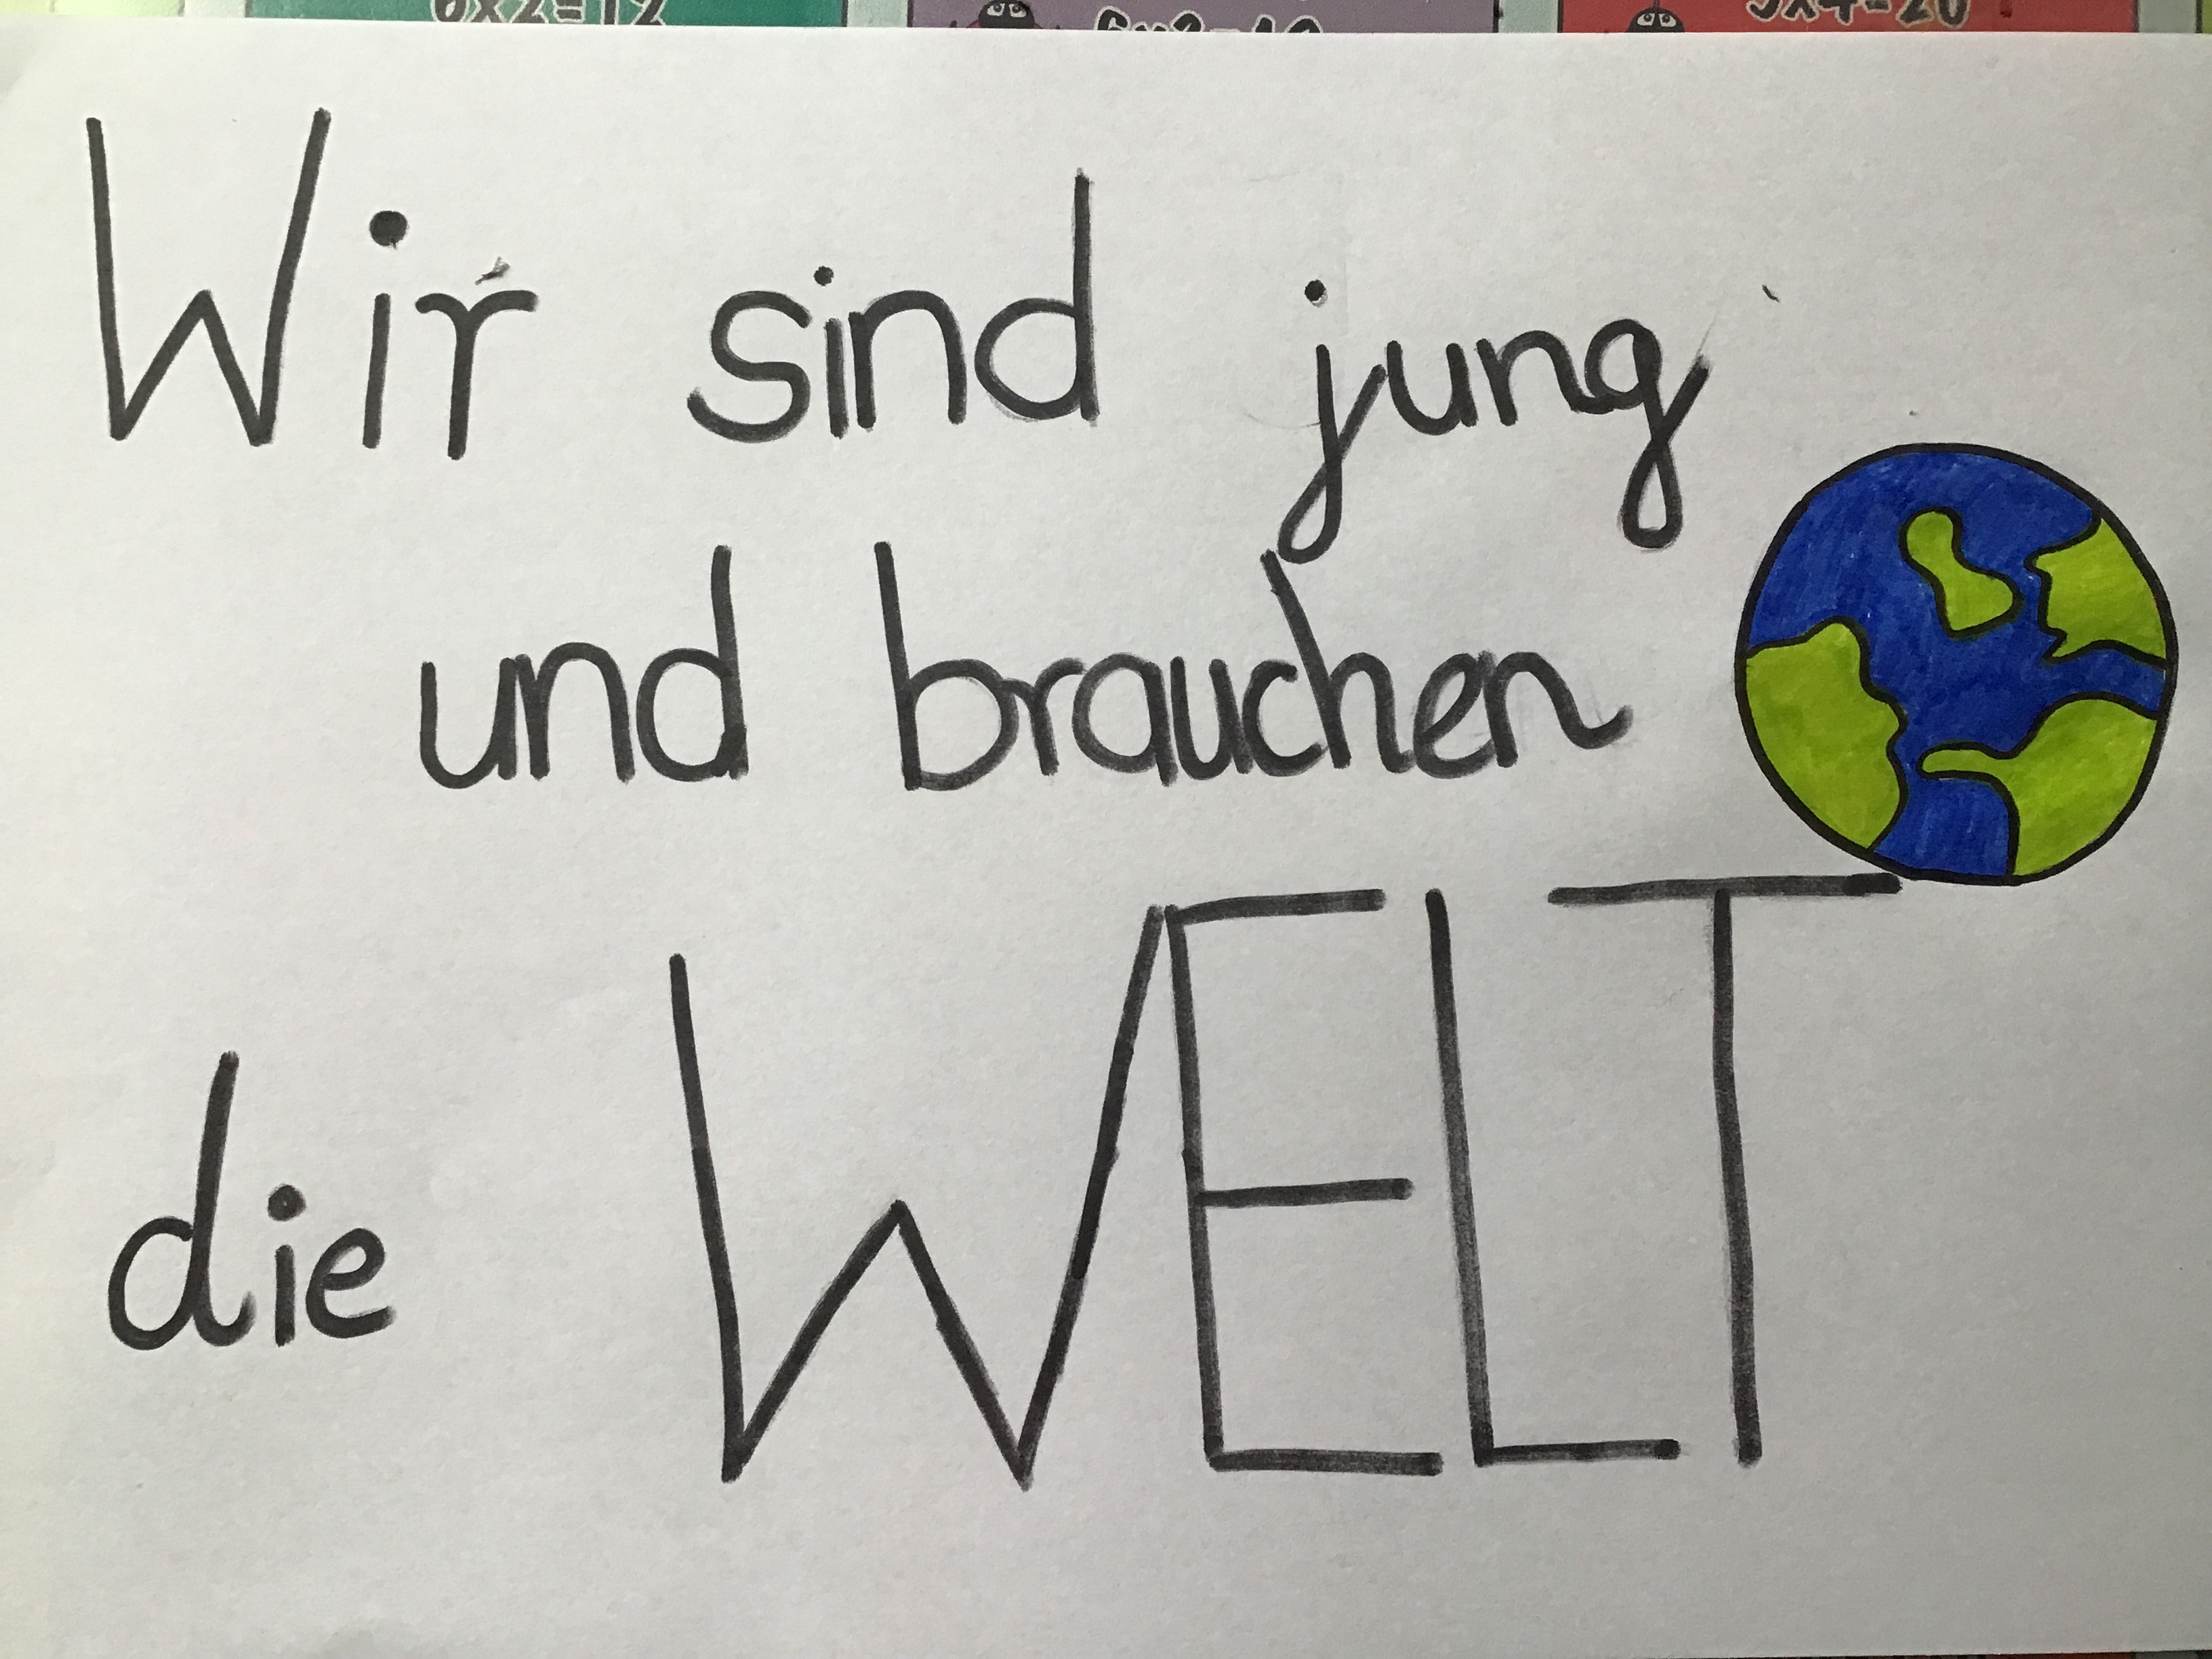 6x2=12
5x4=20
Wir sind jung
und brauchen
die WELT